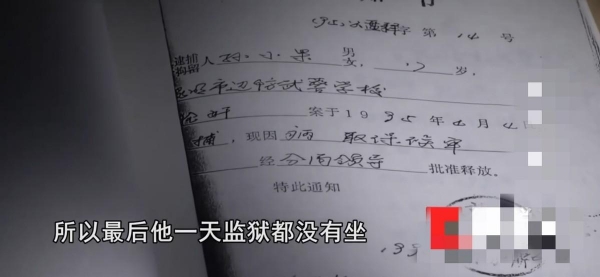 字 第 14 号
逮捕
拘留 人 孙小果 男
女, 17 岁,
昆明市边防武警学校
案于 1995 年 4 月 4 日
捕,现因病 取保候审
经 分局领导 批准释放。
特此通知
所以最后他一天监狱都没有坐